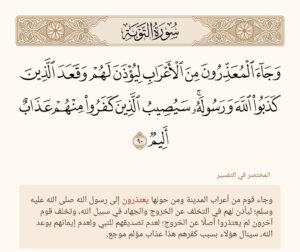 سُورَةُ التَّوْبَةِ
وَجَآءَ ٱلْمُعَذِّرُونَ مِنَ ٱلْأَعْرَابِ لِيُؤْذَنَ لَهُمْ وَقَعَدَ ٱلَّذِينَ
كَذَبُوا۟ ٱللَّهَ وَرَسُولَهُۥۚ سَيُصِيبُ ٱلَّذِينَ كَفَرُوا۟ مِنْهُمْ عَذَابٌ
أَلِيمٌ ٩٠
المختصر في التفسير
وجاء قوم من أعراب المدينة ومن حولها يعتذرون إلى رسول الله صلى الله عليه
وسلم؛ ليأذن لهم في التخلف عن الخروج والجهاد في سبيل الله، وتخلف قوم
آخرون لم يعتذروا أصلًا عن الخروج؛ لعدم تصديقهم للنبي ولعدم إيمانهم بوعد
الله، سينال هؤلاء بسبب كفرهم هذا عذاب مؤلم موجع.